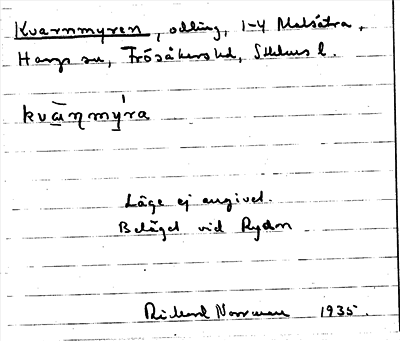 Kvarnmyren, odling, 1-4 Malsätra,
Hargs sn, Frösåkers hd, Sthlms l.
kvàṇmýra
Läge ej angivet.
Beläget vid Rydon
Rickard Norrman 1935.